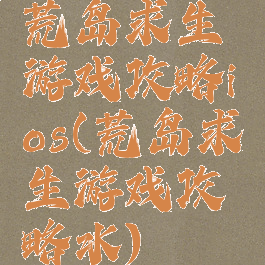 荒岛求生
游戏攻略i
os(荒岛求
生游戏攻
略水)